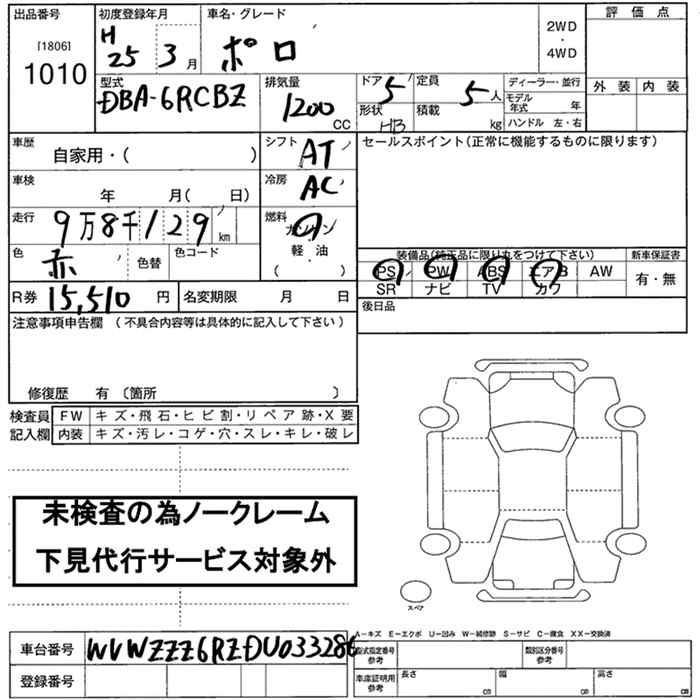 出品番号
[1806]
1010
初度登録年月
H
25 3 月
車名・グレード
ポロ
2WD
・
4WD
評価点
外装 内装
型式
DBA-6RCBZ
排気量
1200
CC
ドア 5
形状 HB
定員 5 人
積載 kg
ディーラー・並行
モデル年式 年
ハンドル 左・右
車歴
自家用・( )
シフト AT
セールスポイント(正常に機能するものに限ります)
車検
年 月( 日)
冷房 AC
走行
9万8千129 km
燃料
ガソリン
軽油
( )
色 赤
色替
色コード
装備品(純正品に限り丸をつけて下さい)
新車保証書
PS PW ABS エアB AW
SR ナビ TV カワ
有・無
R券 15,510 円
名変期限 月 日
後日品
注意事項申告欄 (不具合内容等は具体的に記入して下さい)
修復歴 有〔箇所 〕
検査員
記入欄
FW キズ・飛石・ヒビ割・リペア跡・X要
内装 キズ・汚レ・コゲ・穴・スレ・キレ・破レ
未検査の為ノークレーム
下見代行サービス対象外
スペア
A-キズ E-エクボ U-凹み W-補修跡 S-サビ C-腐食 XX-交換済
車台番号 WVWZZZ6RZDU033286
型式指定番号
参考
類別区分番号
参考
登録番号
車庫証明用
参考
長さ cm
幅 cm
高さ cm